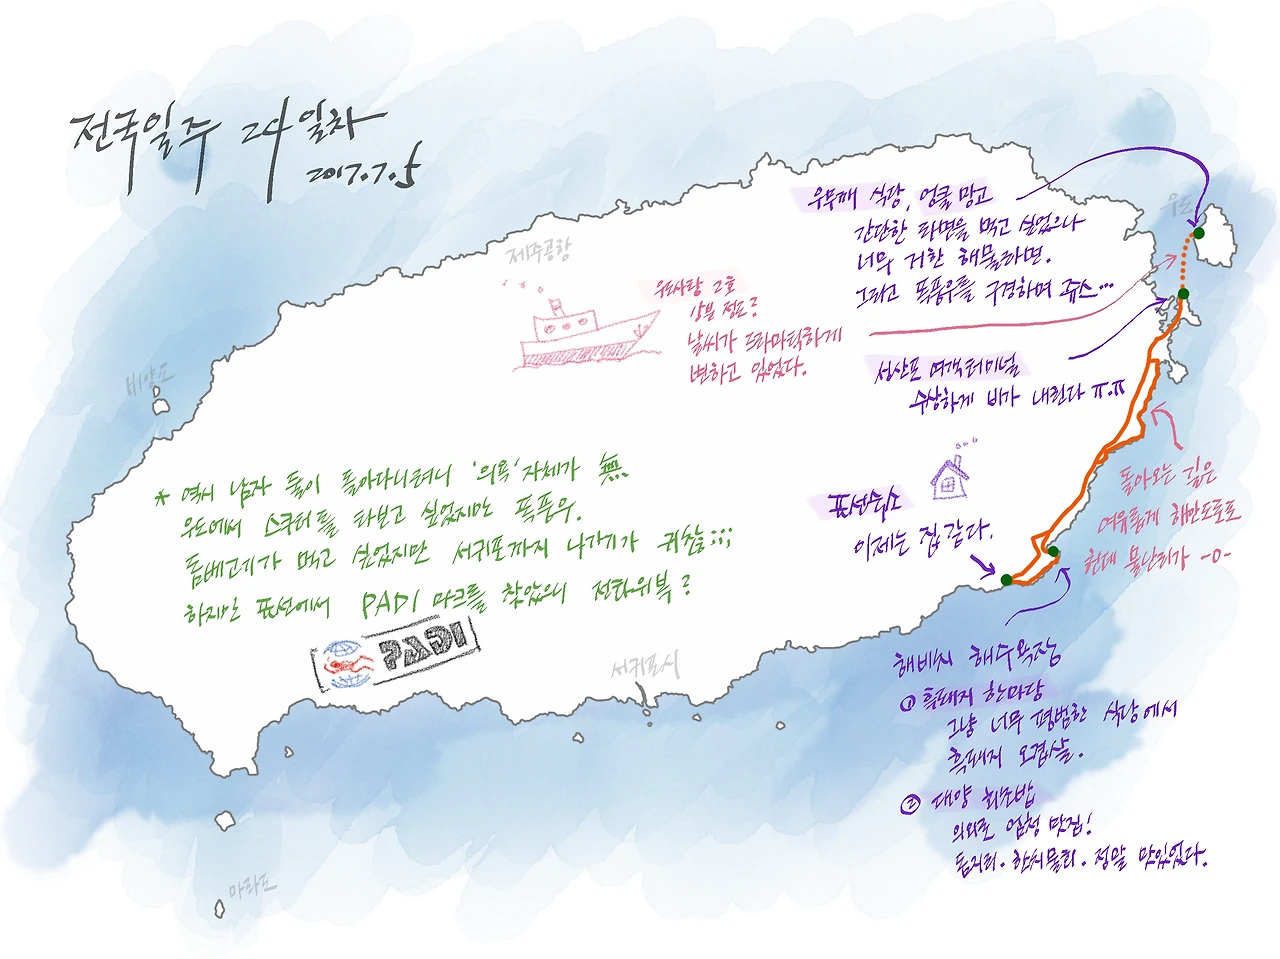 전국일주 24일차
2017.7.5
제주공항
비양도
우도
우뭇깨 식당, 엉클망고
간단한 라면을 먹고 싶었으나
너무 거한 해물라면.
그리고 폭풍우를 구경하며 쥬스...
우도사랑 2호
상부 정도?
날씨가 드라마틱하게
변하고 있었다.
성산포 여객터미널
수상하게 비가 내린다 ㅠ.ㅠ
돌아오는 길은
여유롭게 해안도로로
한데 물난리가 -0-
표선숙소
이제는 집 같다.
* 역시 남자 둘이 돌아다니려니 '의욕' 자체가 無
우도에서 스쿠터를 타보고 싶었지만 폭풍우.
돔베고기가 먹고 싶었지만 서귀포까지 나가기가 귀찮음;;;
하지만 표선에서 PADI 마크를 찾았으니 전화위복?
PADI
서귀포시
해비치 해수욕장
① 흑돼지 한마당
그냥 너무 평범한 식당에서
흑돼지 오겹살.
② 대양 회초밥
의외로 엄청 맛집!
돔지리. 한치물회. 정말 맛있었다.
마라도